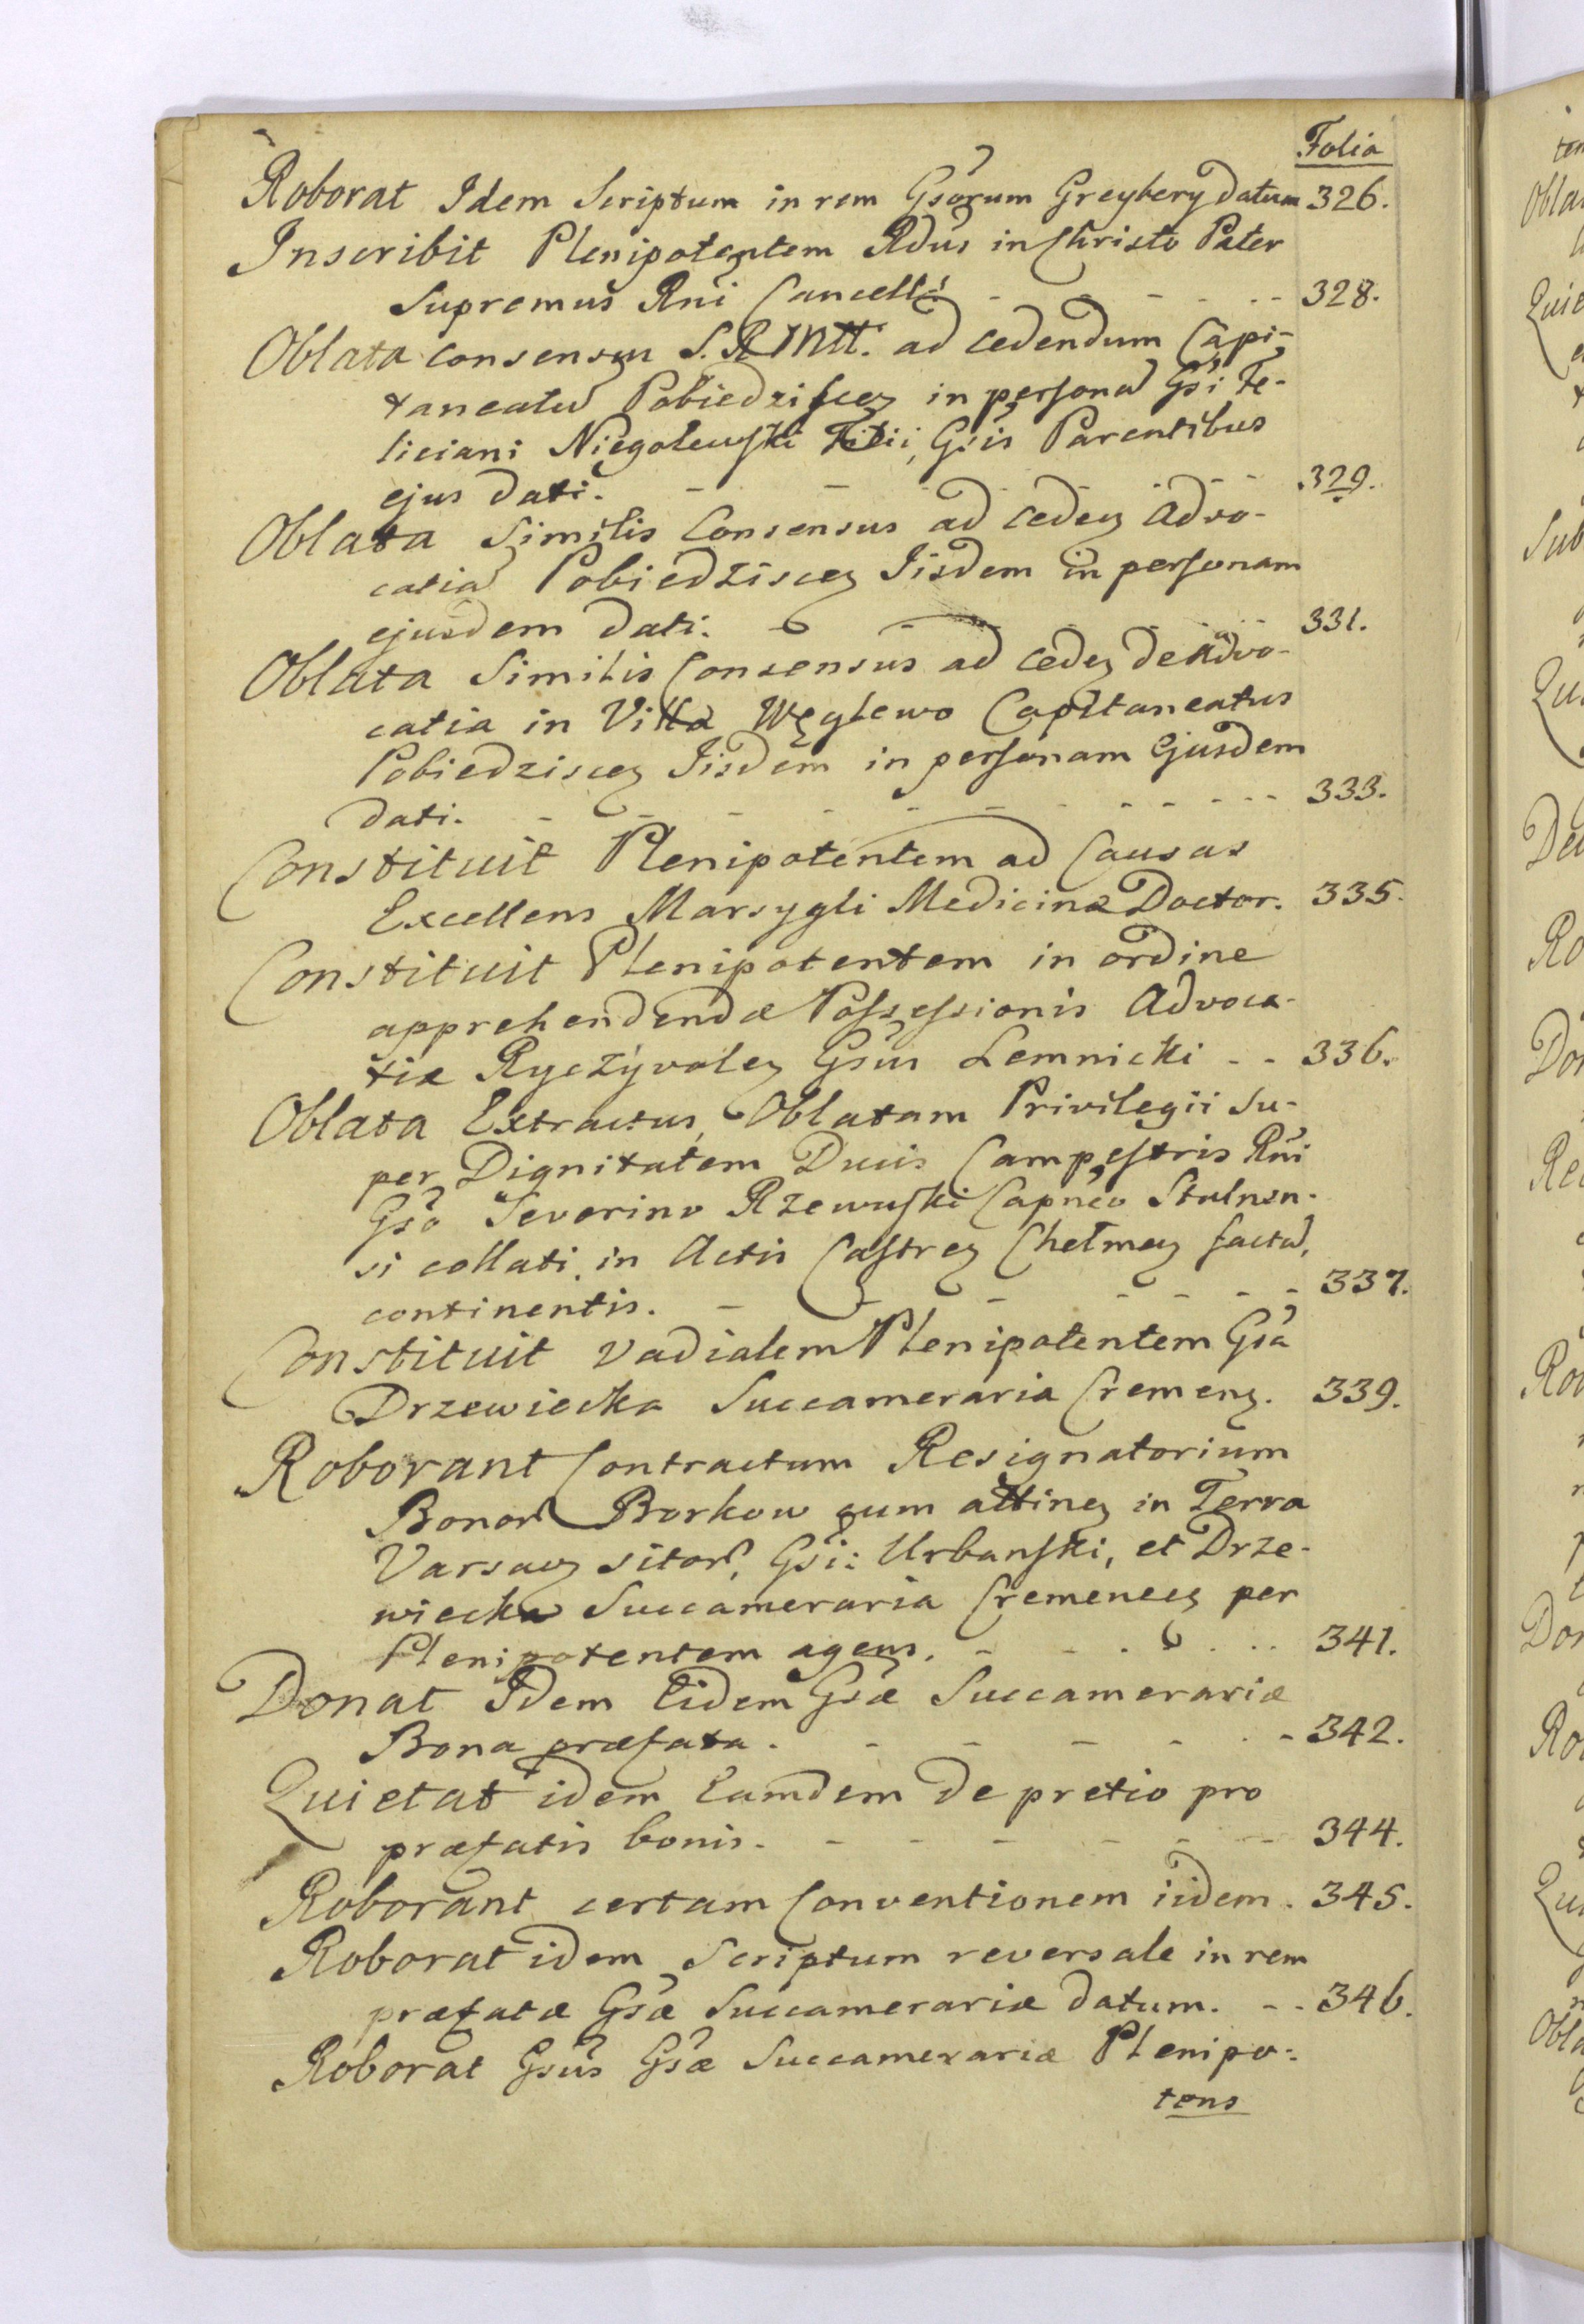 Folia
Roborat Idem Scriptum in rem Gsorum Greybery datum 326.
Inscribit Plenipotentem Rdus in Christo Pater
Supremus Rni Cancell: - - - - - 328.
Oblata consensus S. R. Mtt. ad cedendum Capi-
taneatu Pobiedziscen in persona Gsi Fe-
liciani Niegolewski Filii, Gsis Parentibus
ejus dati. - - - - - 329.
Oblata Similis Consensus ad ceden Advo-
catia Pobiedziscen Iisdem in personam
ejusdem dati. - - - 331.
Oblata Similis Consensus ad ceden de Advo-
catia in Villa Węglewo Capitaneatus
Pobiedziscen Iisdem in personam Ejusdem
dati. - - - - - - - - 333.
Constituit Plenipotentem ad Causas
Excellens Marsygli Medicinæ Doctor. 335.
Constituit Plenipotentem in ordine
apprehendendæ Possessionis Advoca-
tiæ Ryczyvolen Gsus Lemnicki - - 336.
Oblata Extractus, Oblatam Privilegii su-
per Dignitatem Ducis Campestris Rni
Gso Severino Rzewuski Capneo Stulnen-
si collati, in Actis Castren Chelmen facta,
continentis. - - - - - - 337.
Constituit vadialem Plenipotentem Gsa
Drzewiecka Succameraria Cremen. 339.
Roborant Contractum Resignatorium
Bonor Borkow cum attinen in Terra
Varsav sitor, Gsi: Urbanski, et Drze-
wiecka Succameraria Cremenec per
Plenipotentem agens. - - - - 341.
Donat Idem Eidem Gsæ Succamerariæ
Bona præfata. - - - - - 342.
Quietat idem Eamdem de pretio pro
præfatis bonis. - - - - - - 344.
Roborant certam Conventionem iidem. 345.
Roborat idem Scriptum reversale in rem
præfatæ Gsæ Succamerariæ datum. - - 346.
Roborat Gsus Gsæ Succamerariæ Plenipo-
tens